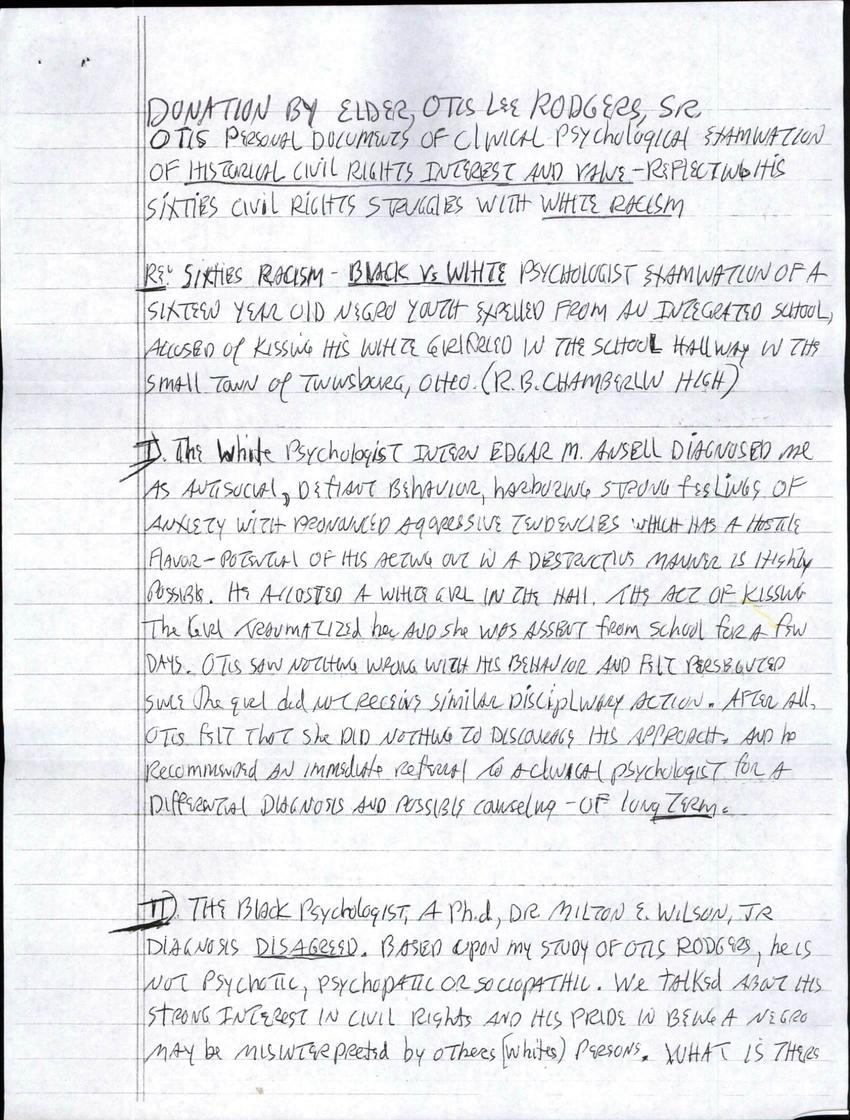 DONATION BY ELDER, OTIS LEE RODGERS, SR.
OTIS PERSONAL DOCUMENTS OF CLINICAL PSYCHOLOGICAL EXAMINATION
OF HISTORICAL CIVIL RIGHTS INTEREST AND VALUE - REFLECTING HIS
SIXTIES CIVIL RIGHTS STRUGGLES WITH WHITE RACISM
RE: SIXTIES RACISM - BLACK VS WHITE PSYCHOLOGIST EXAMINATION OF A
SIXTEEN YEAR OLD NEGRO YOUTH EXPELLED FROM AN INTEGRATED SCHOOL,
ACCUSED OF KISSING HIS WHITE GIRLFRIED IN THE SCHOOL HALLWAY IN THE
SMALL TOWN OF TWINSBURG, OHIO. (R.B. CHAMBERLIN HIGH)
I. The White Psychologist INTERN EDGAR M. ANSELL DIAGNOSED me
AS ANTISOCIAL, DEFIANT BEHAVIOR, HARBORING STRONG feelINGS OF
ANXIETY WITH PRONANCED AGGRESSIVE TENDENCIES WHICH HAS A HOSTILE
flAVOR - POTENTIAL OF HIS ACTING OUT IN A DESTRUCTIVE MANNER IS HIGHly
POSSIBLE. HE ACCOSTED A WHITE GIRL IN THE HAll. THE ACT OF KISSING
The Girl TRAUMATIZED her AND she WAS ABSENT from school for A few
DAYS. OTIS SAW NOTHING WRONG WITH HIS BEHAVIOR AND FELT PERSECUTED
since The girl did not receive similar Disciplinary ACTION. AFTER All,
OTIS felt THAT she DID NOTHING TO DISCOURAGE HIS APPROACH. AND he
Recommended AN immediate referral to a clinical psychologist for A
DIFFERENTIAL DIAGNOSIS AND POSSIBLE counseling - OF long TERM.
II). THE Black Psychologist, A Ph.d, DR. MILTON E. WILSON, JR
DIAGNOSIS DISAGREED. BASED upon my STUDY OF OTIS RODGERS, he is
NOT PSYCHOTIC, PSYCHOPATIC OR SOCIOPATHIC. We talked ABOUT HIS
STRONG INTEREST IN CIVIL RIGHTS AND HIS PRIDE IN BEING A NEGRO
MAY be MISINTERPRETED by OTHERS (WHITES) PERSONS. WHAT IS THERE